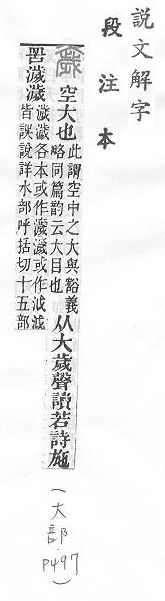 説文解字
段注本
奯 空大也 此謂空中之大與豁義
略同篇韵云大目也
从大歲聲讀若詩施
罟濊濊 濊濊各本或作瀎瀎或作泧泧
皆誤說詳水部呼括切十五部
(大部 P497)